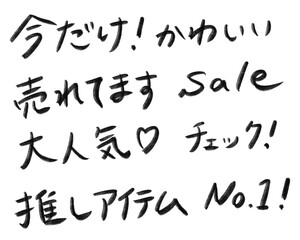 今だけ! かわいい
売れてます sale
大人気♡ チェック!
推しアイテム No.1!